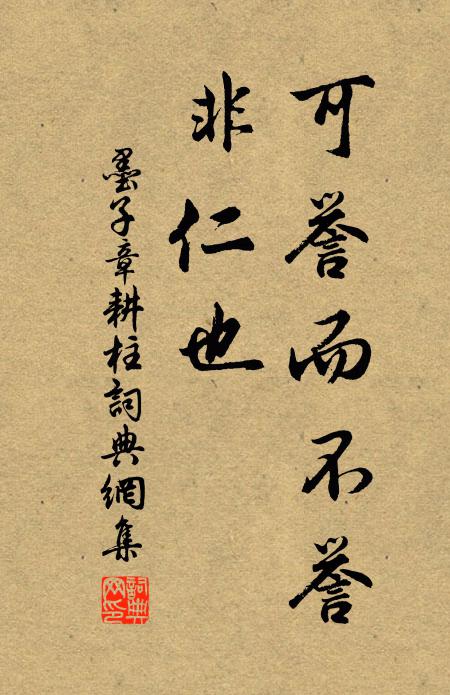 可誉而不誉
非仁也
墨子章耕柱詞典網集
詞典网印